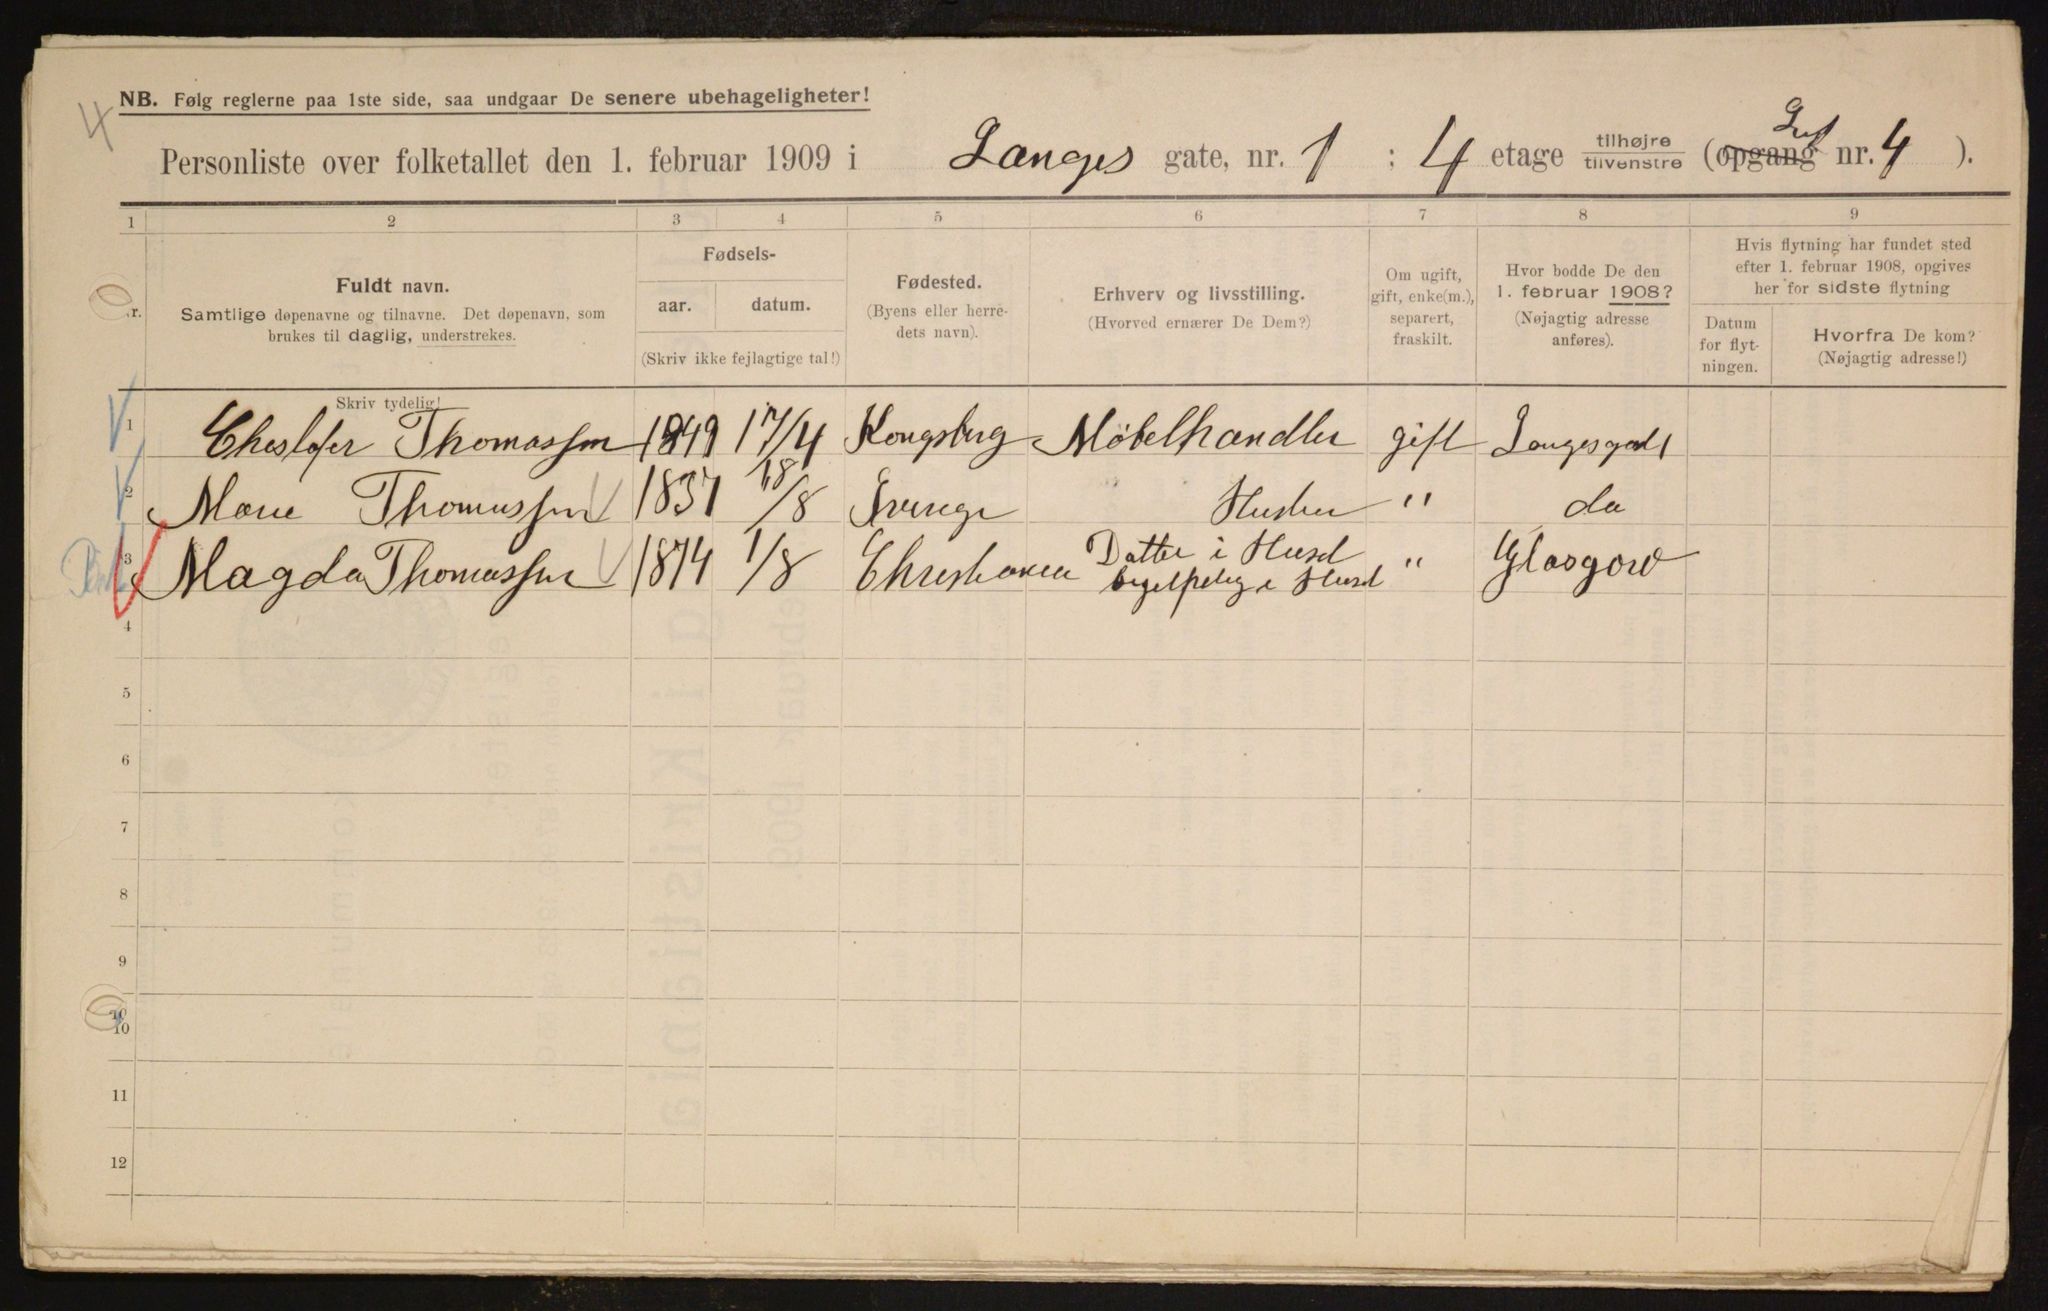 4
NB. Følg reglerne paa 1ste side, saa undgaar De senere ubehageligheter!
Personliste over folketallet den 1. februar 1909 i Langes gate, nr. 1 ; 4 etage tilhøjre / tilvenstre (opgang nr. 4 ).
1 2 3 4 5 6 7 8 9
Fuldt navn.
Samtlige døpenavne og tilnavne. Det døpenavn, som
brukes til daglig, understrekes.
Fødsels-
aar. datum.
(Skriv ikke fejlagtige tal!)
Fødested.
(Byens eller herre-
dets navn).
Erhverv og livsstilling.
(Hvorved ernærer De Dem?)
Om ugift,
gift, enke(m.),
separert,
fraskilt.
Hvor bodde De den
1. februar 1908?
(Nøjagtig adresse
anføres).
Hvis flytning har fundet sted
efter 1. februar 1908, opgives
her for sidste flytning
Datum
for flyt-
ningen.
Hvorfra De kom?
(Nøjagtig adresse!)
Skriv tydelig!
1 Thomassen 1849 17/4 Kongsberg Møbelhandler gift Langesgad 1
2 Marie Thomassen 1837 18/8 Sverige Hustru " do
3 Magda Thomassen 1874 1/8 Christiania Datter i Huset " Glasgow
i Huset
4
5
6
7
8
9
10
10
11
12